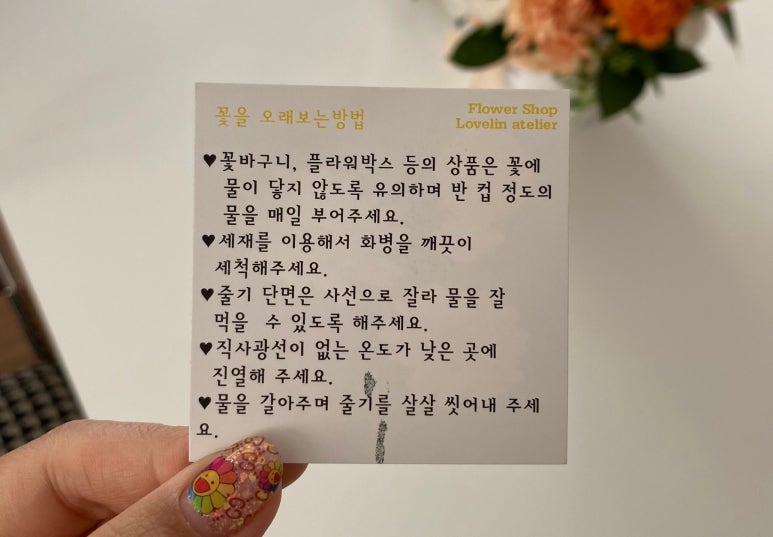 꽃을 오래보는방법
Flower Shop
Lovelin atelier
♥꽃바구니, 플라워박스 등의 상품은 꽃에
물이 닿지 않도록 유의하며 반 컵 정도의
물을 매일 부어주세요.
♥세재를 이용해서 화병을 깨끗이
세척해주세요.
♥줄기 단면은 사선으로 잘라 물을 잘
먹을 수 있도록 해주세요.
♥직사광선이 없는 온도가 낮은 곳에
진열해 주세요.
♥물을 갈아주며 줄기를 살살 씻어내 주세
요.